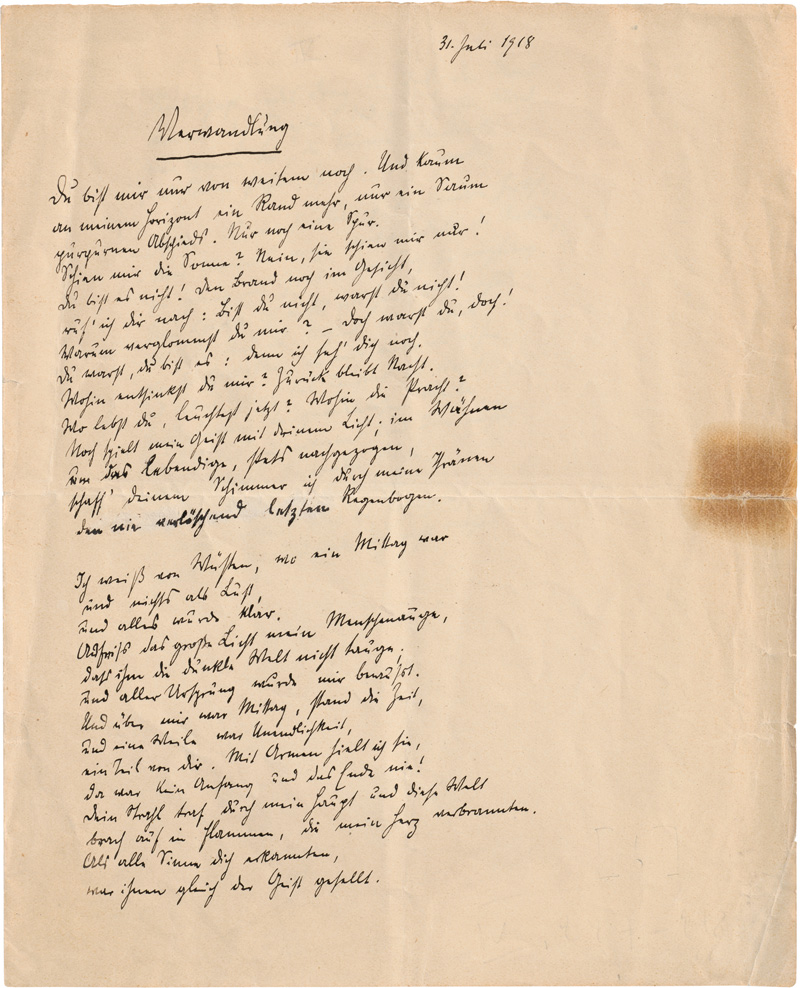 31. Juli 1918
Verwandlung
Du bist mir nur von weitem noch. Und kaum
an meinem Horizont ein Rand mehr, nur ein Saum
purpurnen Abschieds. Nur noch eine Spur.
Schien mir die Sonne? Nein, sie schien mir nur!
Du bist es nicht! Den Brand noch im Gesicht,
ruf' ich dir nach: Bist du nicht, warst du nicht!
Warum verglommst du mir? – Doch warst du, doch!
Du warst, du bist es: denn ich seh' dich noch.
Wohin entsinkst du mir? Zurück bleibt Nacht.
Wo lebst du, leuchtest jetzt? Wohin die Pracht?
Noch spielt mein Geist mit deinem Licht; im Wähnen
um das Lebendige, stets nachgezogen,
schaff' deinem Schimmer ich durch meine Thränen
den nie verlöschend letzten Regenbogen.
Ich weiß von Wüsten, wo ein Mittag war
und nichts als Lust,
und alles wurde klar.
Aufriss das große Licht mein Menschenauge,
dass ihm die dunkle Welt nicht tauge,
und aller Ursprung wurde mir bewusst.
Und über mir war Mittag, stand die Zeit,
und eine Weile war Unendlichkeit,
ein Teil von dir. Mit Armen hielt ich sie,
da war kein Anfang und das Ende nie!
Dein Strahl traf durch mein Haupt und diese Welt
brach auf in Flammen, die mein Herz verbrannten.
Als alle Sinne dich erkannten,
war ihnen gleich der Geist gesellt.